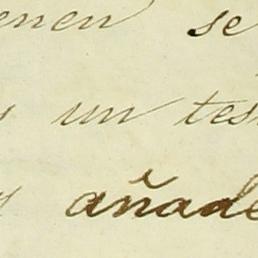 enen se
un tes
añade